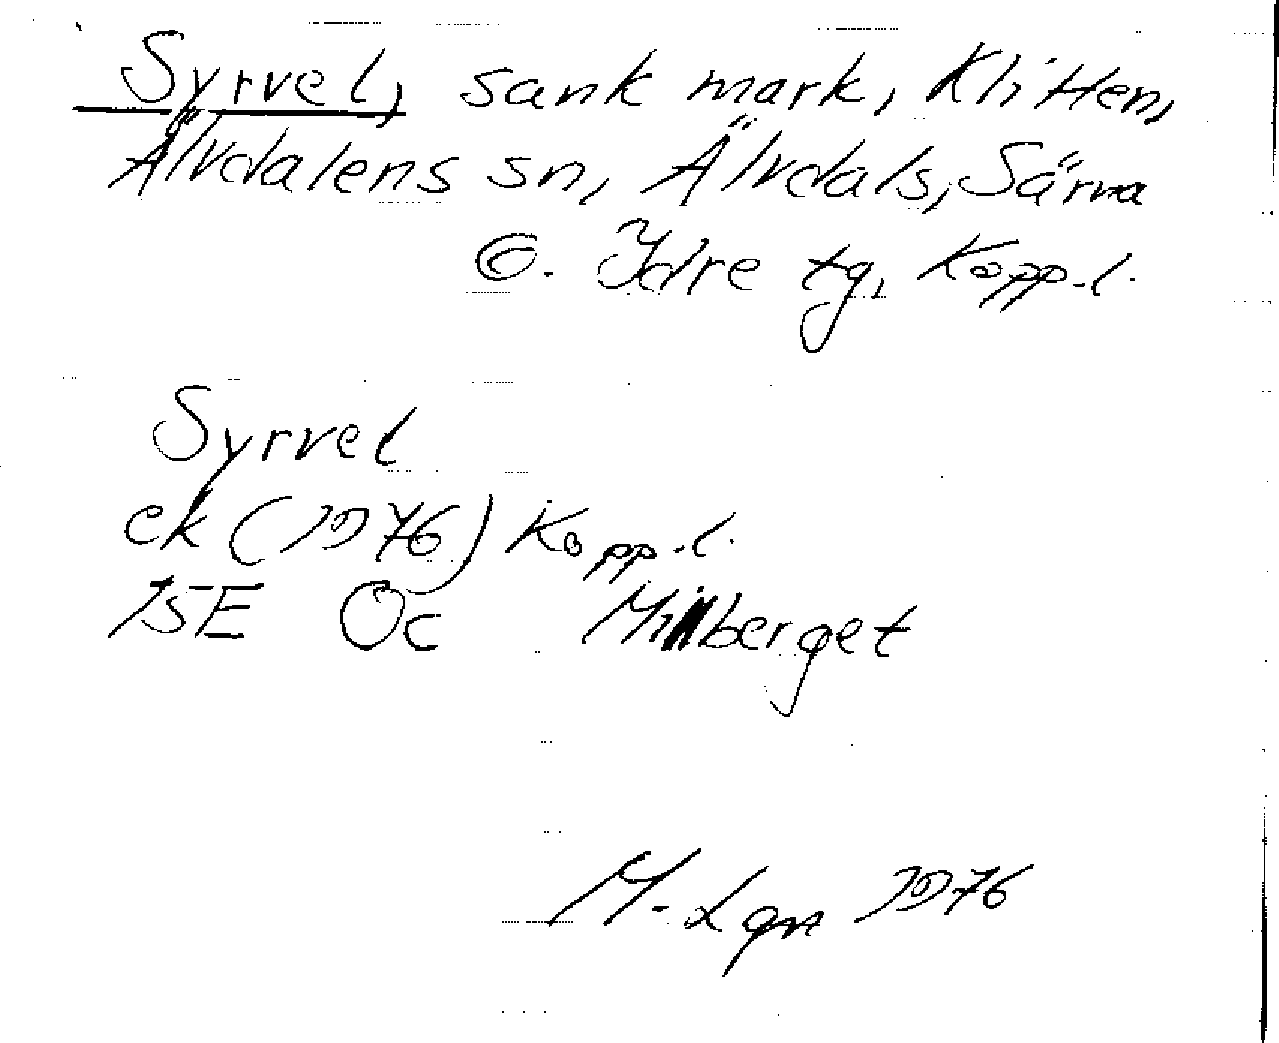 Syrvel, sank mark, Klitten,
Älvdalens sn, Älvdals, Särna
o. Idre tg, Kopp.l.
Syrvel
ek (1976) Kopp.l.
15E 0c Millberget
M. Lgn 1976